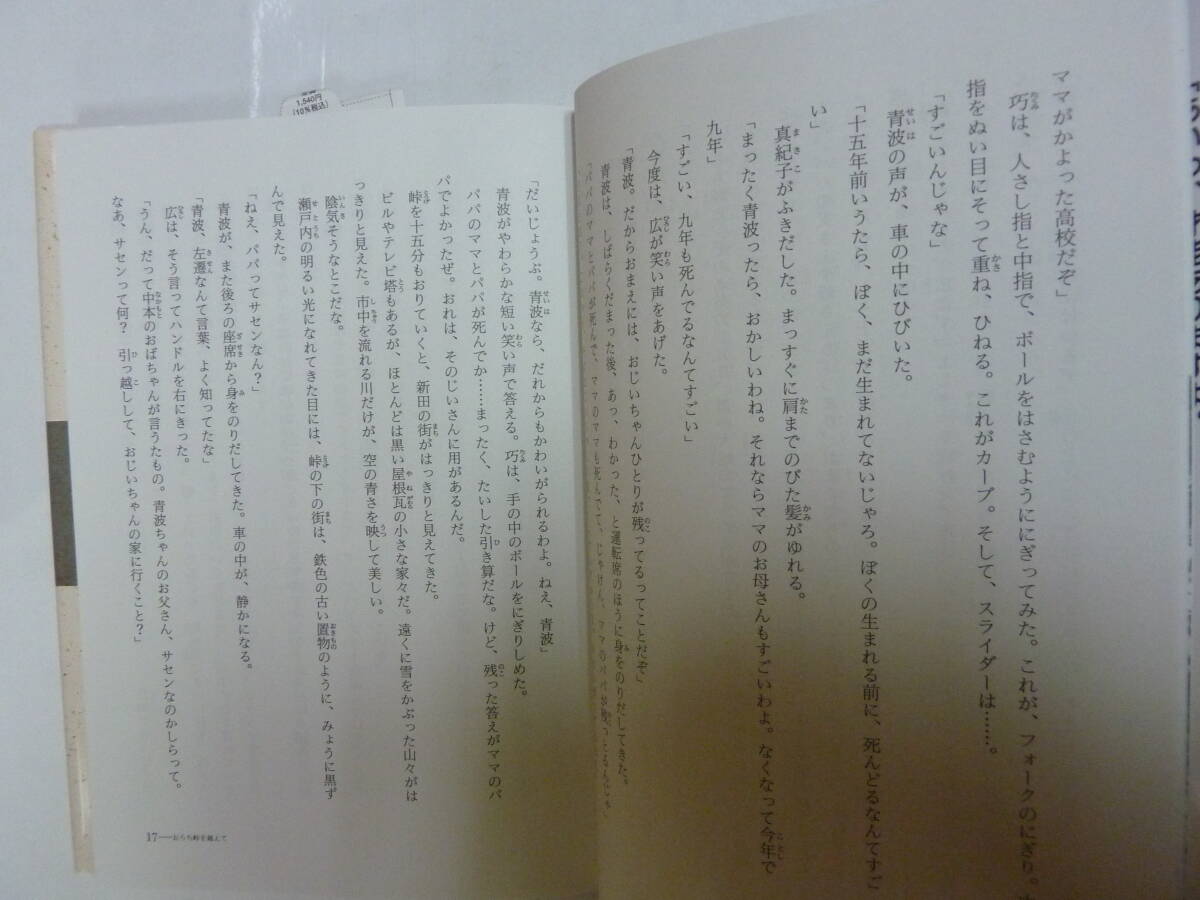 ママがかよった高校だぞ」
巧は、人さし指と中指で、ボールをはさむようににぎってみた。これが、フォークのにぎり。
指をぬい目にそって重ね、ひねる。これがカーブ。そして、スライダーは……。
「すごいんじゃな」
青波の声が、車の中にひびいた。
「十五年前いうたら、ぼく、まだ生まれてないじゃろ。ぼくの生まれる前に、死んどるなんてすご
い」
真紀子がふきだした。まっすぐに肩までのびた髪がゆれる。
「まったく青波ったら、おかしいわね。それならママのお母さんもすごいわよ。なくなって今年で
九年」
「すごい、九年も死んでるなんてすごい」
今度は、広が笑い声をあげた。
「青波。だからおまえには、おじいちゃんひとりが残ってるってことだぞ」
青波は、しばらくだまった後、あっ、わかった、と運転席のほうに身をのりだしてきた。
「パパのママとパパが死んで、ママのママも死んでて、じゃけん、ママのパパが残っとるんじゃ
「だいじょうぶ。青波なら、だれからもかわいがられるわよ。ねえ、青波」
青波がやわらかな短い笑い声で答える。巧は、手の中のボールをにぎりしめた。
パパのママとパパが死んでか……まったく、たいした引き算だな。けど、残った答えがママのパ
パでよかったぜ。おれは、そのじいさんに用があるんだ。
峠を十五分もおりていくと、新田の街がはっきりと見えてきた。
ビルやテレビ塔もあるが、ほとんどは黒い屋根瓦の小さな家々だ。遠くに雪をかぶった山々がは
っきりと見えた。市中を流れる川だけが、空の青さを映して美しい。
陰気そうなとこだな。
瀬戸内の明るい光になれてきた目には、峠の下の街は、鉄色の古い置物のように、みょうに黒ず
んで見えた。
「ねえ、パパってサセンなん?」
青波が、また後ろの座席から身をのりだしてきた。車の中が、静かになる。
「青波、左遷なんて言葉、よく知ってたな」
広は、そう言ってハンドルを右にきった。
「うん、だって中本のおばちゃんが言うたもの。青波ちゃんのお父さん、サセンなのかしらって。
なあ、サセンって何? 引っ越しして、おじいちゃんの家に行くこと?」
17──おろち峠を越えて
1,540円
(10%税込)